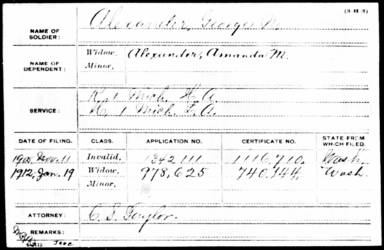 (3-H 8)
NAME OF SOLDIER: Alexander, George
NAME OF DEPENDENT: Widow, Alexander, Amanda M.
Minor,
SERVICE: K. 1 Mich. H. A.
K. 1 Mich. L. A.
DATE OF FILING. CLASS. APPLICATION NO. CERTIFICATE NO. STATE FROM WHICH FILED.
Nov. 11 Invalid, 1342111 1116,710. Wash.
1912, Jan. 19 Widow, 978,625 740,144, Wash
Minor,
ATTORNEY: C. S. Taylor.
REMARKS: